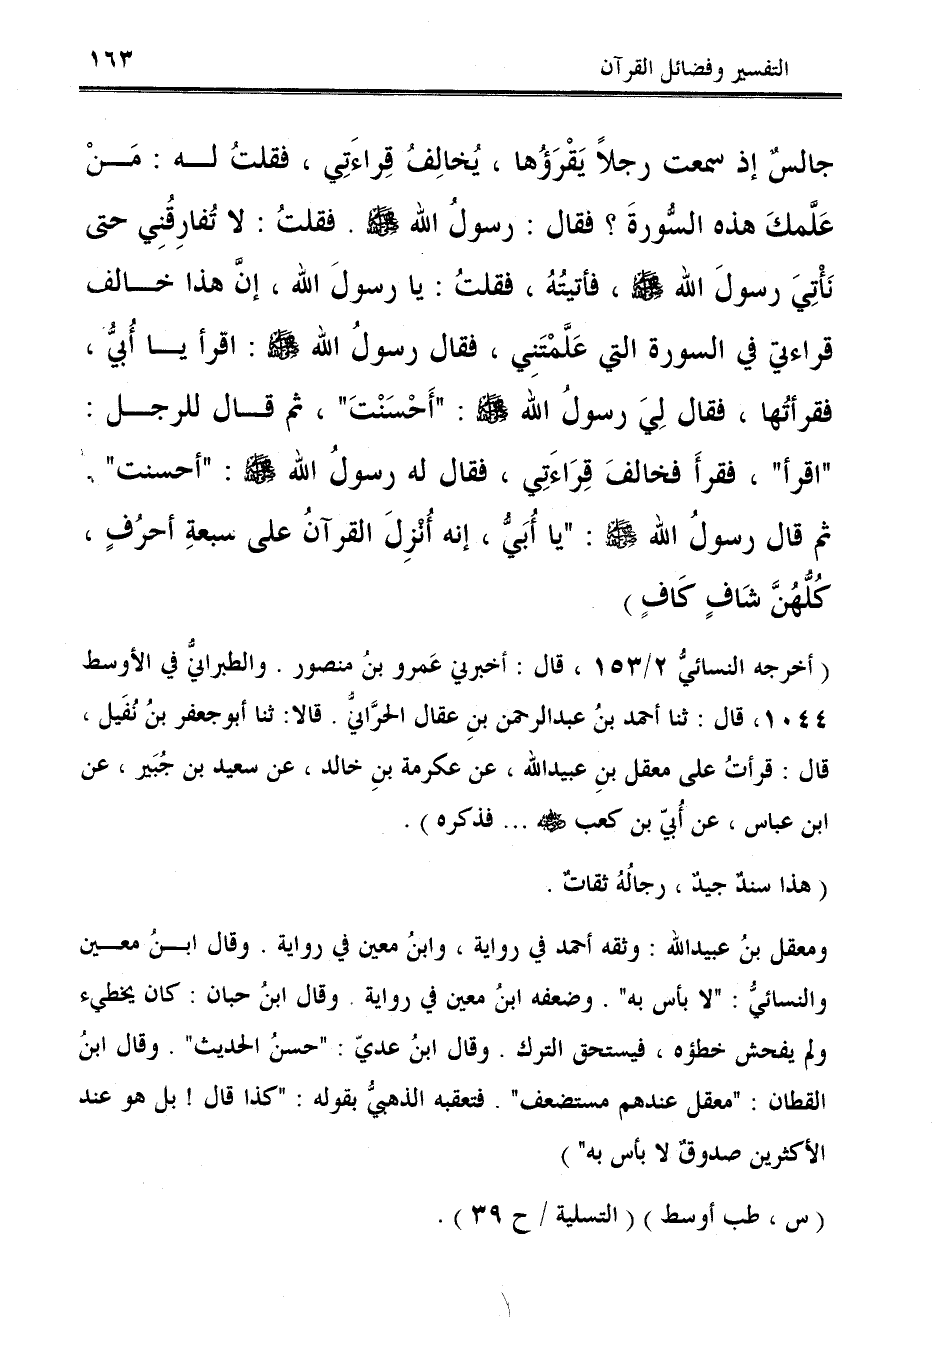 التفسير وفضائل القرآن ١٦٣
جالسٌ إذ سمعت رجلاً يَقْرَؤُها ، يُخالِفُ قِراءَتِي ، فقلتُ لـــه : مَـــنْ
عَلَّمكَ هذه السُّورةَ ؟ فقال : رسولُ الله ﷺ . فقلتُ : لا تُفارِقُنِي حتى
نَأْتِيَ رسولَ الله ﷺ ، فأتيتُهُ ، فقلتُ : يا رسولَ الله ، إنَّ هذا خـــالف
قراءتي في السورة التي عَلَّمْتَنِي ، فقال رسولُ الله ﷺ : اقرأ يـــا أُبيُّ ،
فقرأتُها ، فقال لِيَ رسولُ الله ﷺ : "أَحْسَنْتَ" ، ثم قـــال للرجـــل :
"اقرأ" ، فقرأَ فخالفَ قِرَاءَتِي ، فقال له رسولُ الله ﷺ : "أحسنت" .
ثم قال رسولُ الله ﷺ : "يا أُبَيُّ ، إنه أُنْزِلَ القرآنُ على سبعةِ أحرُفٍ ،
كُلُّهُنَّ شَافٍ كَافٍ )
( أخرجه النسائيُّ ١٥٣/٢ ، قال : أخبرني عَمرو بنُ منصور . والطبرانيُّ في الأوسط
١٠٤٤، قال : ثنا أحمد بنُ عبدالرحمن بنِ عقال الحرَّانيُّ . قالا: ثنا أبوجعفر بنُ نُفَيل ،
قال : قرأتُ على معقل بنِ عبيدالله ، عن عكرمة بنِ خالد ، عن سعيد بن جُبَير ، عن
ابن عباس ، عن أُبيّ بن كعب ﷺ ... فذكره ) .
( هذا سندٌ جيدٌ ، رجالُهُ ثقاتٌ .
ومعقل بنُ عبيدالله : وثقه أحمد في رواية ، وابنُ معين في رواية . وقال ابـــنُ معـــين
والنسائيُّ : "لا بأس به" . وضعفه ابنُ معين في رواية . وقال ابنُ حبان : كان يخطيء
ولم يفحش خطؤه ، فيستحق الترك . وقال ابنُ عديّ : "حسنُ الحديث" . وقال ابنُ
القطان : "معقل عندهم مستضعف" . فتعقبه الذهبيُّ بقوله : "كذا قال ! بل هو عند
الأكثرين صدوقٌ لا بأس به" )
( س ، طب أوسط ) ( التسلية / ح ٣٩ ) .